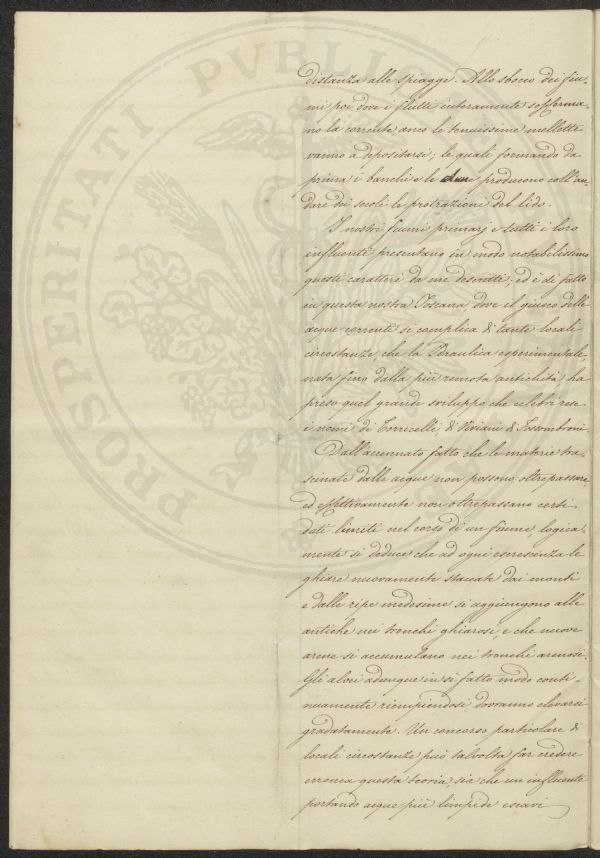 distanza alle spiagge. Allo sbocco dei fiu-
mi poi dove i flutti interamente sofferma-
no la corrente anco le tenuissime mellette
vanno a depositarsi; le quali formando da
prima i banchi e le dune producono coll'an-
dare dei secoli le protrazioni del lido.
I nostri fiumi primarj e tutti i loro
influenti presentano in modo notabilissimo
questi caratteri da me descritti; ed è di fatto
in questa nostra Toscana, dove il giuoco delle
acque correnti si complica di tante locali
circostanze, che la Idraulica esperimentale,
nata fino dalla più remota antichità ha
preso quel grande sviluppo che celebri rese
i nomi di Torricelli, di Viviani di Fossombroni.
Dall'accennato fatto che le materie tra-
scinate dalle acque non possono oltrepassare
ed effettivamente non oltrepassano certi
dati limiti nel corso di un fiume, logica-
mente si deduce che ad ogni escrescenza le
ghiare nuovamente staccate dai monti
e dalle ripe medesime si aggiungono alle
antiche nei tronchi ghiarosi, e che nuove
arene si accumulano nei tronchi arenosi.
Gli alvei adunque in sì fatto modo conti-
nuamente riempiendosi dovranno elevarsi
gradatamente. Un concorso particolare di
locali circostanze può talvolta far credere
erronea questa teoria; sia che un influente
portando acque più limpide escavi
PROSPERITATI PVBLICAE